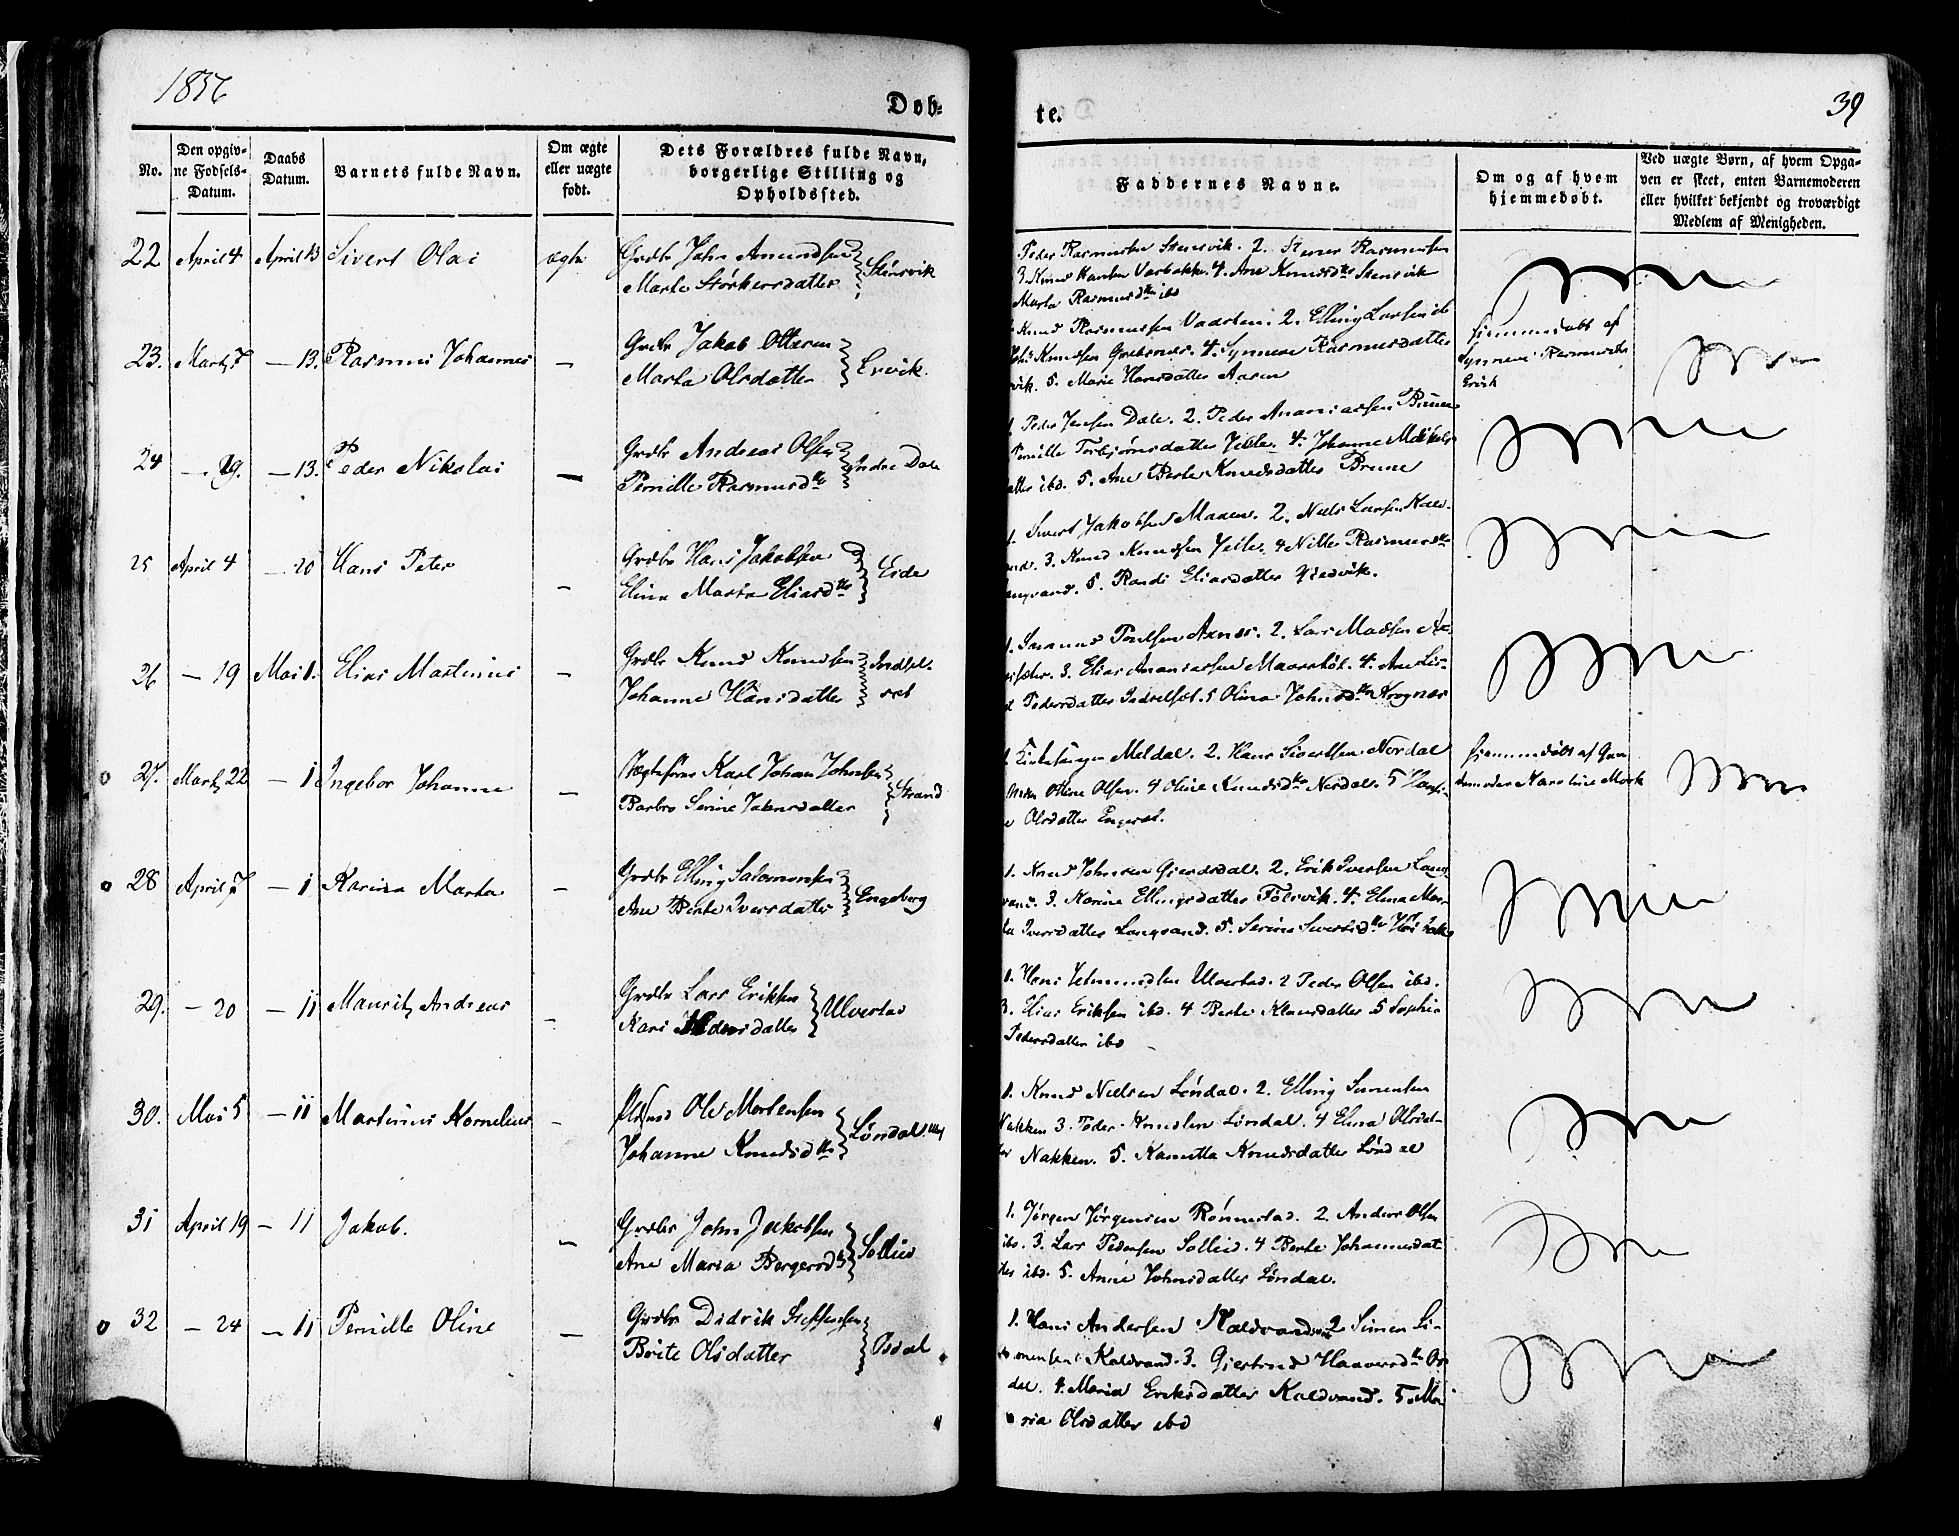 1836
Døb-
te.
39
No.
Den opgiv-
ne Fødsels-
Datum.
Daabs
Datum.
Barnets fulde Navn.
Om ægte
eller uægte
født.
Dets Forældres fulde Navn,
borgerlige Stilling og
Opholdssted.
Faddernes Navne.
Om og af hvem
hjemmedøbt.
Ved uægte Børn, af hvem Opga-
ven er skeet, enten Barnemoderen
eller hvilket bekjendt og troværdigt
Medlem af Menigheden.
22 April 4 April 13 Sivert Olai ægte Grdbr John Amundsen Stensvik
Marte Størkersdatter
Peder Rasmussen Stensvik. 2. Stener Rasmussen
3. Knud Vasbakke. 4. Ane Knudsdtr Stensvik
Marta Rasmusdtr ibd
23. Marts 7 — 13. Rasmus Johannes — Grdbr Jakob Ottesen Ervik.
Marta Olsdatter
Knud Rasmussen 2. Elling Larsen ib
Knudsen 4. Synneve Rasmusdatter
vik. 5. Marie Hansdatter Aasen
hjemmedøbt af
Synneve Rasmusdtr
24 — 29. — 13. Peder Nikolai — Grdbr Andreas Olsen Indre Dale
Pernille Rasmusdtr
1. Peder Jensen Dale. 2. Peder Ananiassen Brune
Pernille Torbjørnsdatter 4. Johanne Mikkels
atter ibd. 5. Ane Berte Knudsdatter Brune
25 April 4 — 20 Hans Peter — Grdbr Hans Jakobsen Eide
Elina Marta Eliasdtr
1. Sivert Jakobsen 2. Niels Larsen Kald-
3. Knud Knudsen 4 Nille Rasmusdtr
5. Randi Eliasdatter
26 — 19 Mai 1. Elias Martinus — Grdbr Knud Knudsen Indsel-
Johanne Hansdatter set
1. Poulsen Axnes. 2. Lars Madsen Ax-
3. Elias Ananiassen 4. Ane Lis-
Pedersdatter Indselset. 5 Olina Johnsdtr Krognæs
27. Marts 22 — 1 Ingebor Johanne — Karl Johan Johnsen Strand
Barbro Serine Jakobsdatter
Meldal. 2. Hans Sivertsen Nordal
Oline Olsen. 4 Oline Knudsdtr Nordal. 5
Olsdatter Engeset.
hjemmedøbt af
Karoline Mork
28 April 7 — 1 Karina Marta — Grdbr Elling Salomonsen Engeberg
Ane Berte Iversdatter
1. Knud Johnsen 2. Erik Iversen Lang
3. Karine Ellingsdatter 4. Elina Mar-
ta Iversdatter Langvand. 5. Serine Sivertsdtr
29. — 20 — 11 Maurits Andreas — Grdbr Lars Eriksen Ulvestad
Kari
1. Hans Ulvestad. 2 Peder Olsen ibd.
3. Elias Eriksen ibd. 4 Berte Hansdatter 5 Sophie
Pedersdatter ibd
30. Mai 5 — 11 Martinus Kornelius — Plsmd Ole Mortensen Løndal
Johanne Knudsdtr
1. Knud Nielsen Løndal. 2. Elling Simensen
Nakken 3. Peder Knudsen Løndal. 4 Elina Olsdat-
ter Nakken. 5. Kanutta Knudsdatter Løndal
31 April 19 — 11 Jakob. — Grdbr John Jakobsen Sollid
Ane Maria Bergersd
1. Jørgen Jørgensen Rønnestad. 2. Anders Olsen
ibd. 3. Lars Pedersen Sollid. 4 Berte Johannesdat
ter ibd. 5. Anne Johnsdatter Løndal.
32 — 24 — 11 Pernille Oline — Grdbr Didrik Steffensen Osdal
Brite Olsdatter
1. Hans Andersen Kaldvand 2 Simen Si-
monsen Kaldvand. 3. Giertrud Haaversdtr Os-
dal. 4. Maria Eriksdatter Kaldvand. 5. Ma-
ria Olsdatter ibd